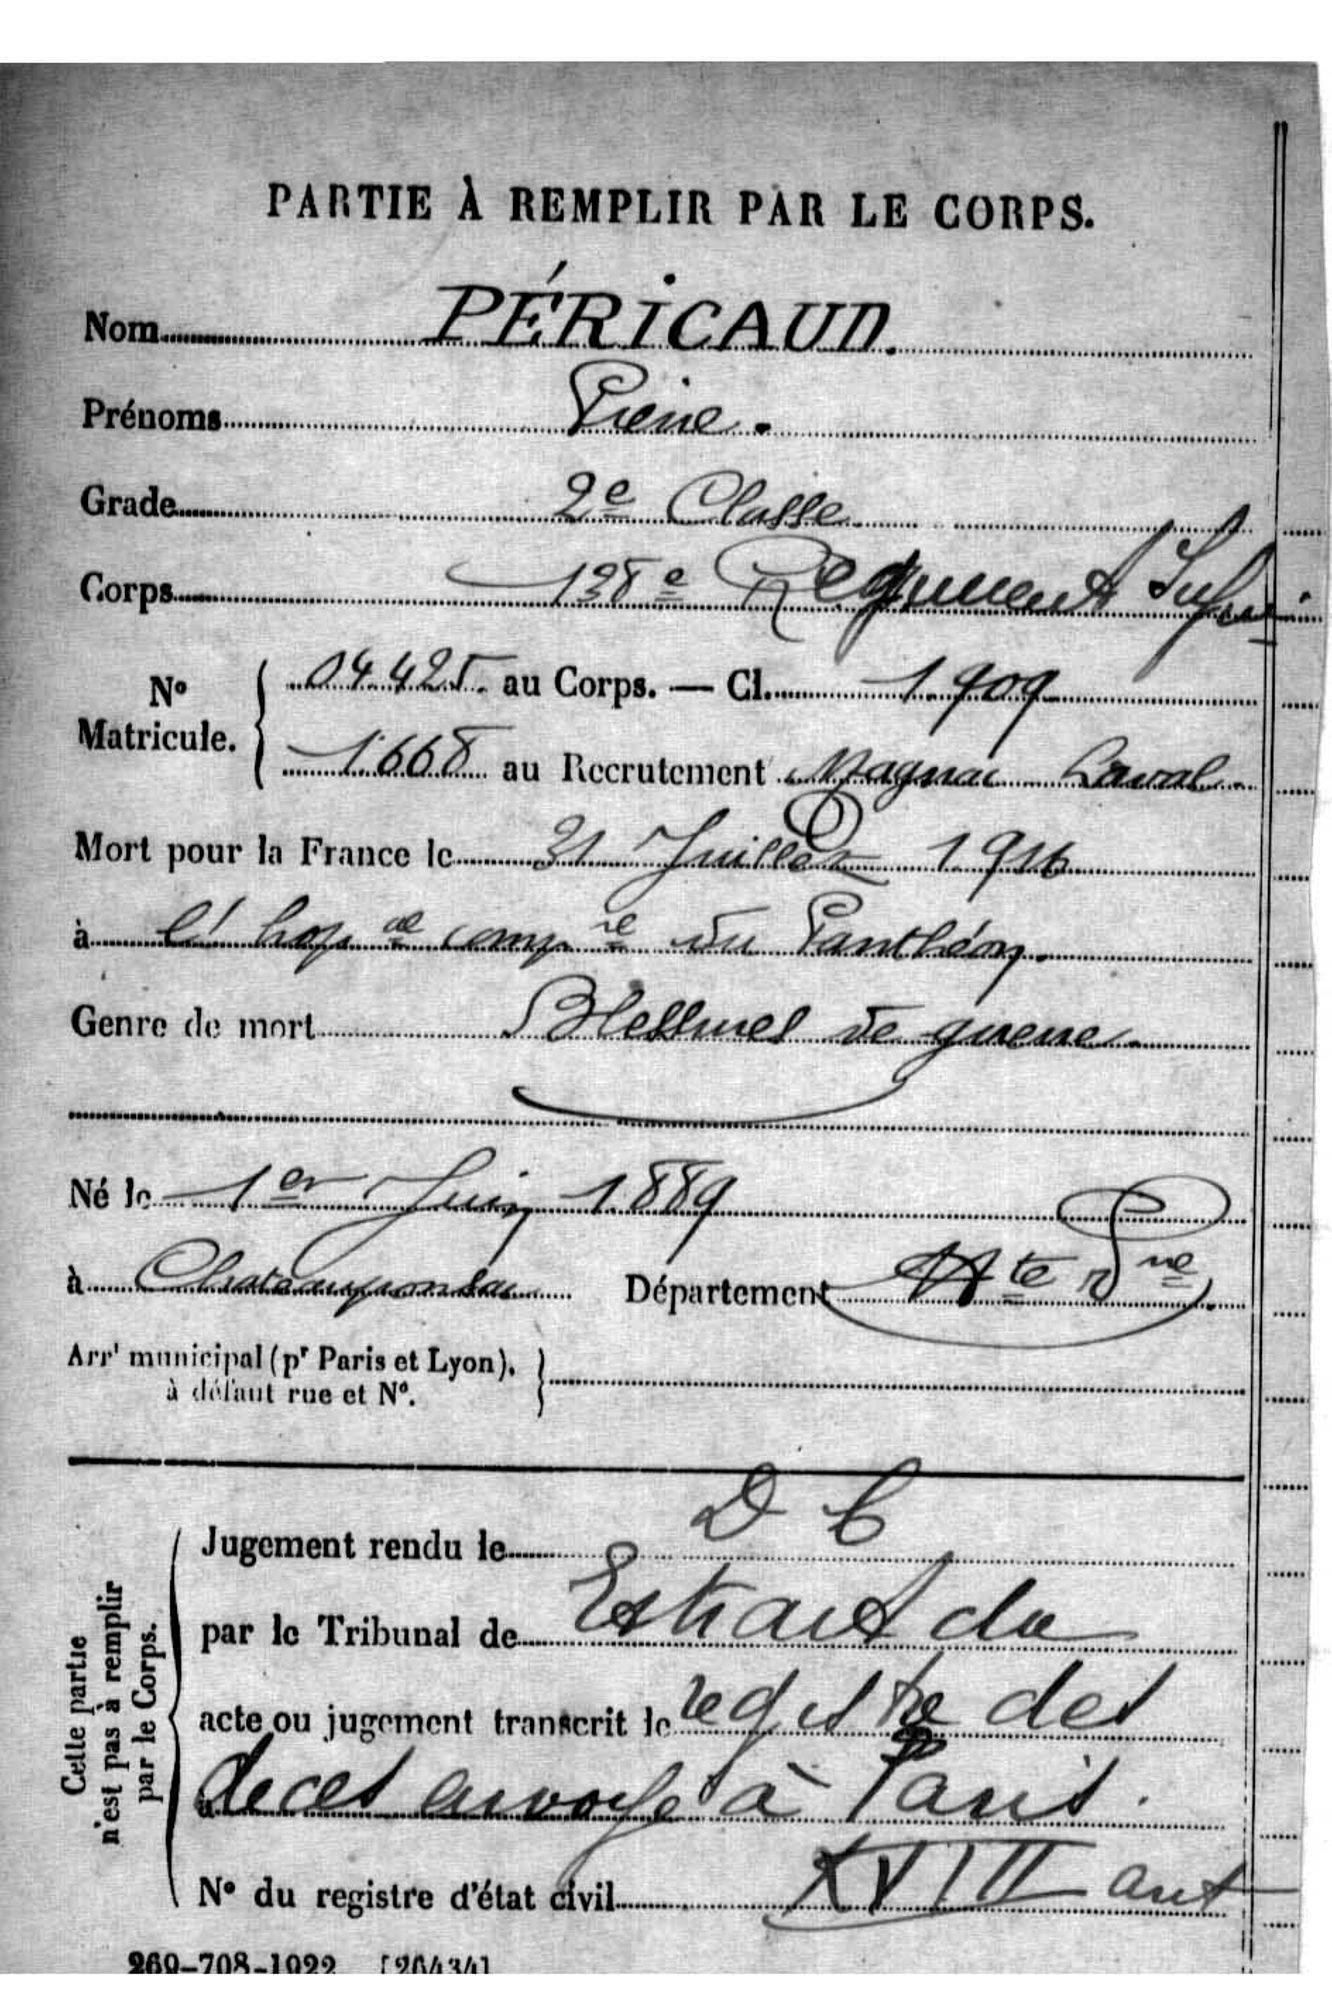 PARTIE À REMPLIR PAR LE CORPS.
Nom PÉRICAUD.
Prénoms Pierre.
Grade 2e Classe
Corps 138e Régiment Infie
No Matricule. 04425 au Corps. — Cl. 1909
1668 au Recrutement Magnac Laval.
Mort pour la France le 31 Juillet 1916
à l'hop al comp re du Panthéon.
Genre de mort Blessures de guerre.
Né le 1er Juin 1889
à Chateauponsac Département Hte Vne
Arrt municipal (pr Paris et Lyon),
à défaut rue et No.
Cette partie n'est pas à remplir par le Corps.
Jugement rendu le D C
par le Tribunal de Extrait du
acte ou jugement transcrit le registre des
décès envoyé à Paris.
No du registre d'état civil XVIII art
269-708-1922 [26434]